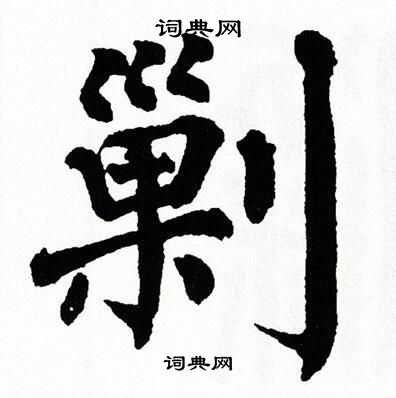 词典网
剿
词典网